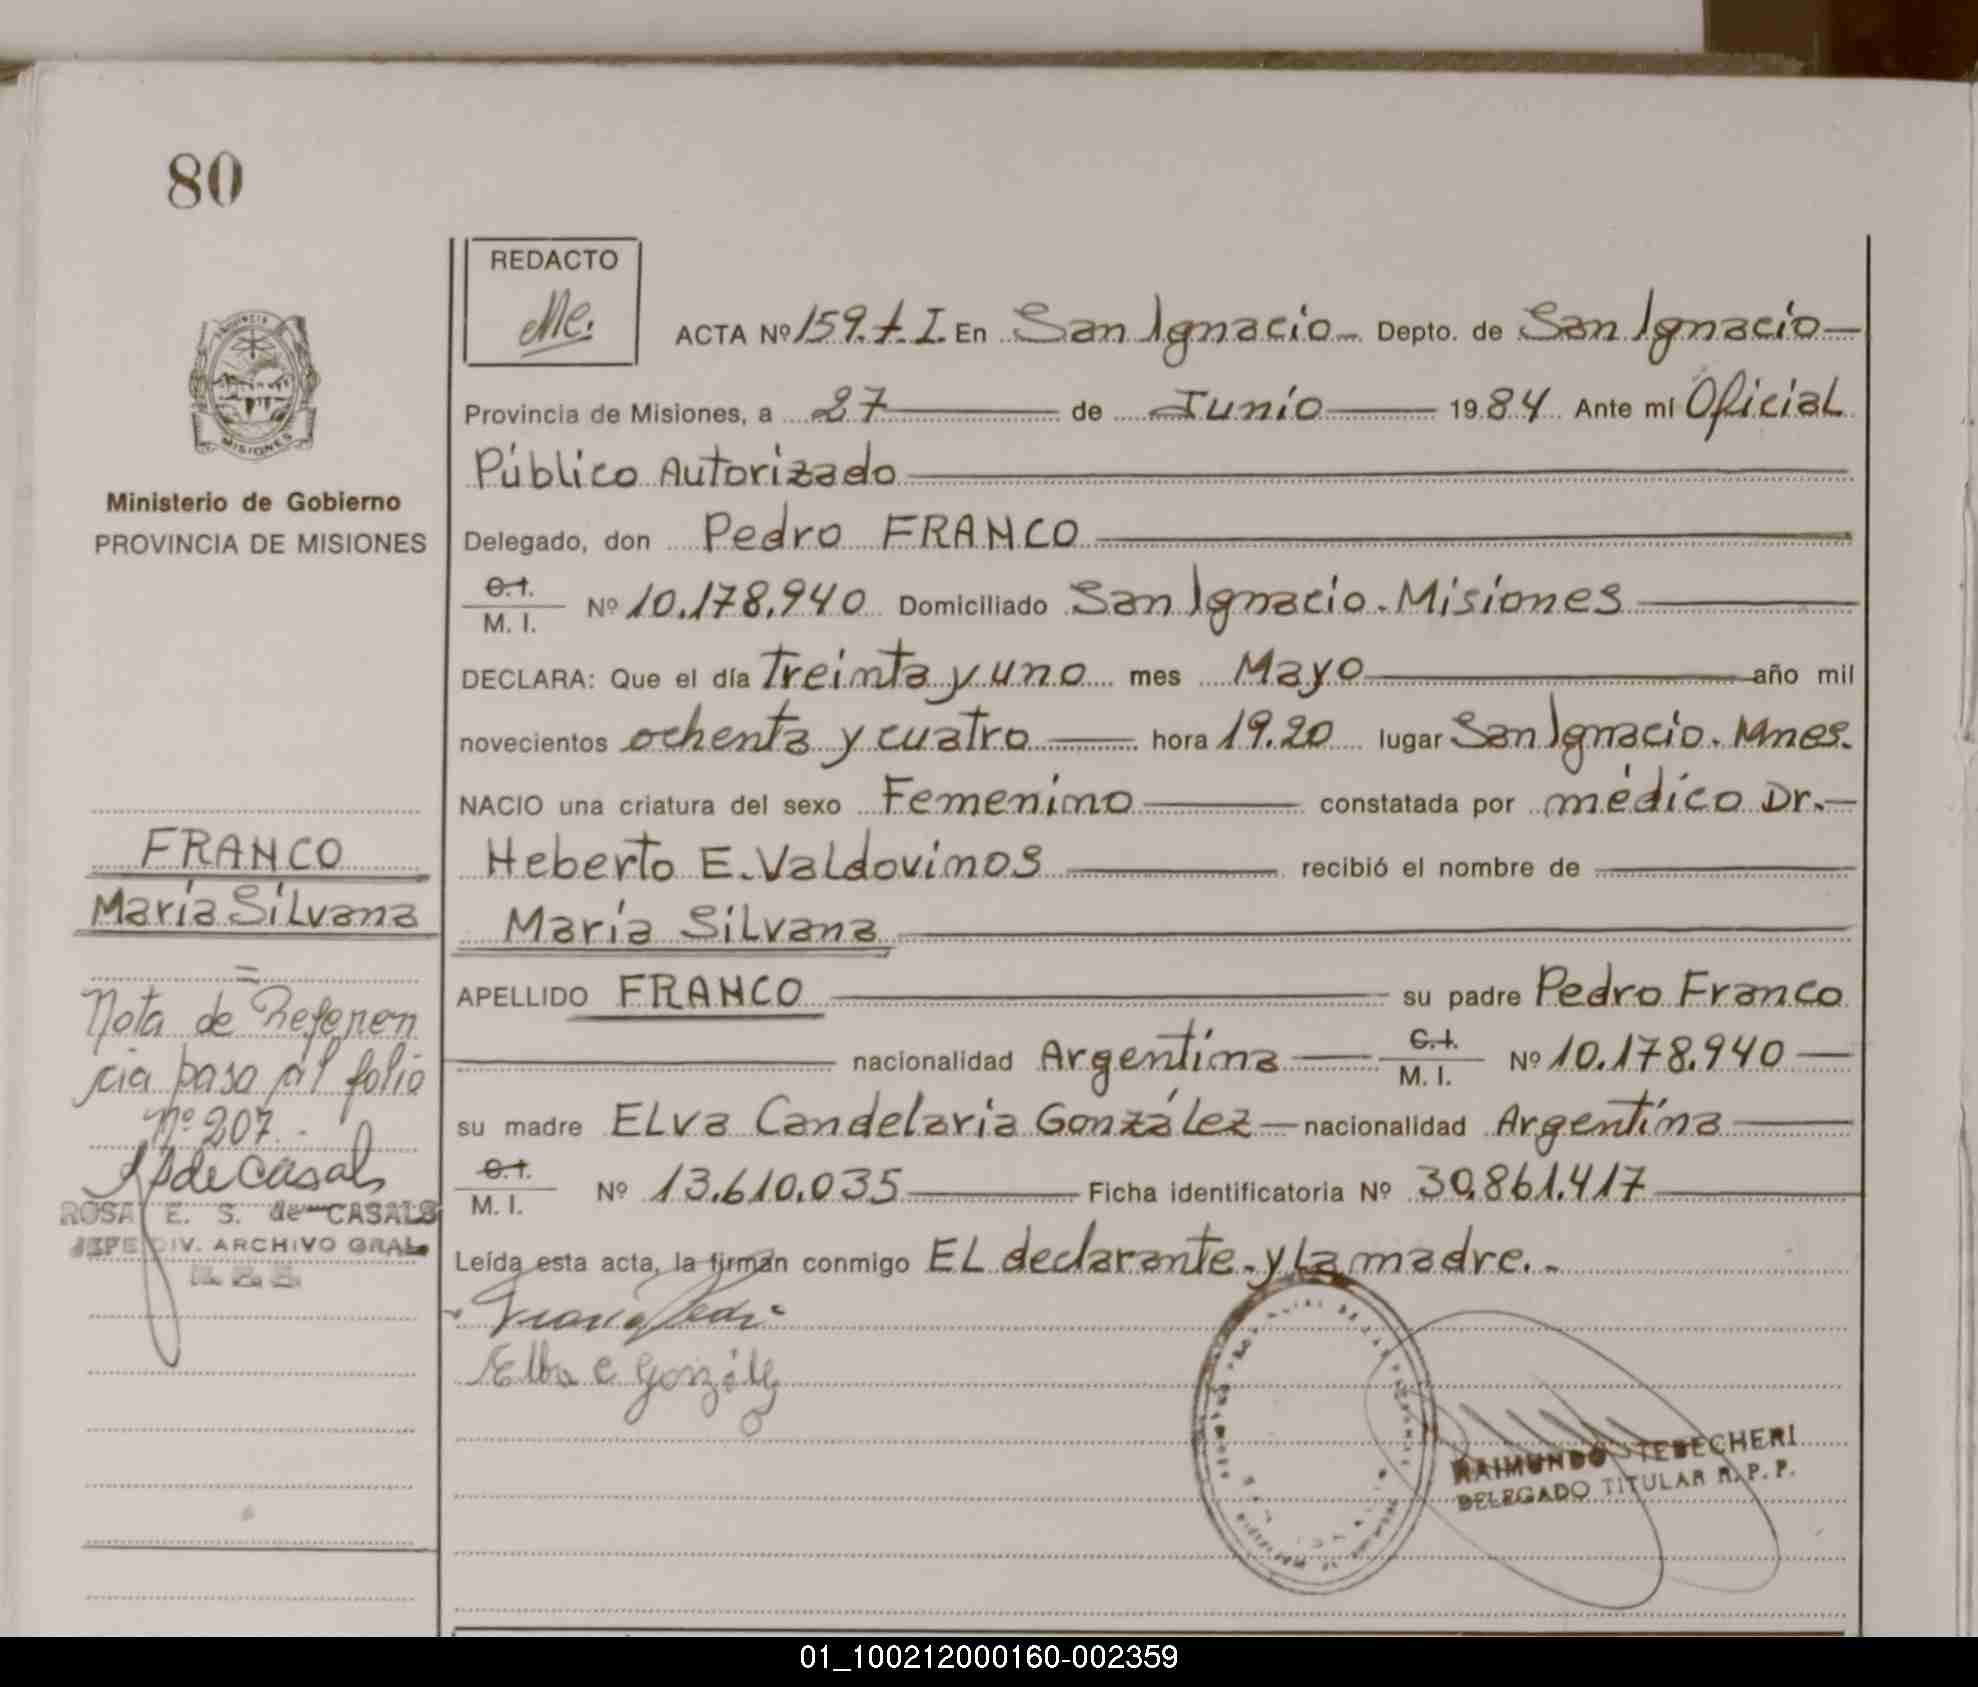 80
REDACTO
Me.
ACTA Nº 159.t.I. En San Ignacio Depto. de San Ignacio
Provincia de Misiones, a 27 de Junio 1984 Ante mí Oficial
Público Autorizado
Delegado, don Pedro FRANCO
C.I.
M. I. Nº 10.178.940 Domiciliado San Ignacio. Misiones
DECLARA: Que el día Treinta y uno mes Mayo año mil
novecientos ochenta y cuatro hora 19.20 lugar San Ignacio. Mnes.
NACIO una criatura del sexo Femenino constatada por médico Dr.
Heberto E. Valdovinos recibió el nombre de
María Silvana
APELLIDO FRANCO su padre Pedro Franco
nacionalidad Argentina C.I. M. I. Nº 10.178.940
su madre Elva Candelaria González nacionalidad Argentina
C.I.
M. I. Nº 13.610.035 Ficha identificatoria Nº 30.861.417
Leída esta acta, la firman conmigo El declarante. y La madre.
Elba C González
RAIMUNDO TEBECHERI
DELEGADO TITULAR R. P. P.
PROVINCIA
MISIONES
Ministerio de Gobierno
PROVINCIA DE MISIONES
FRANCO
María Silvana
Nota de Referen
cia paso al folio
Nº 207.
de Casals
ROSA E. S. de CASALS
JEFE DIV. ARCHIVO GRAL.
01_100212000160-002359